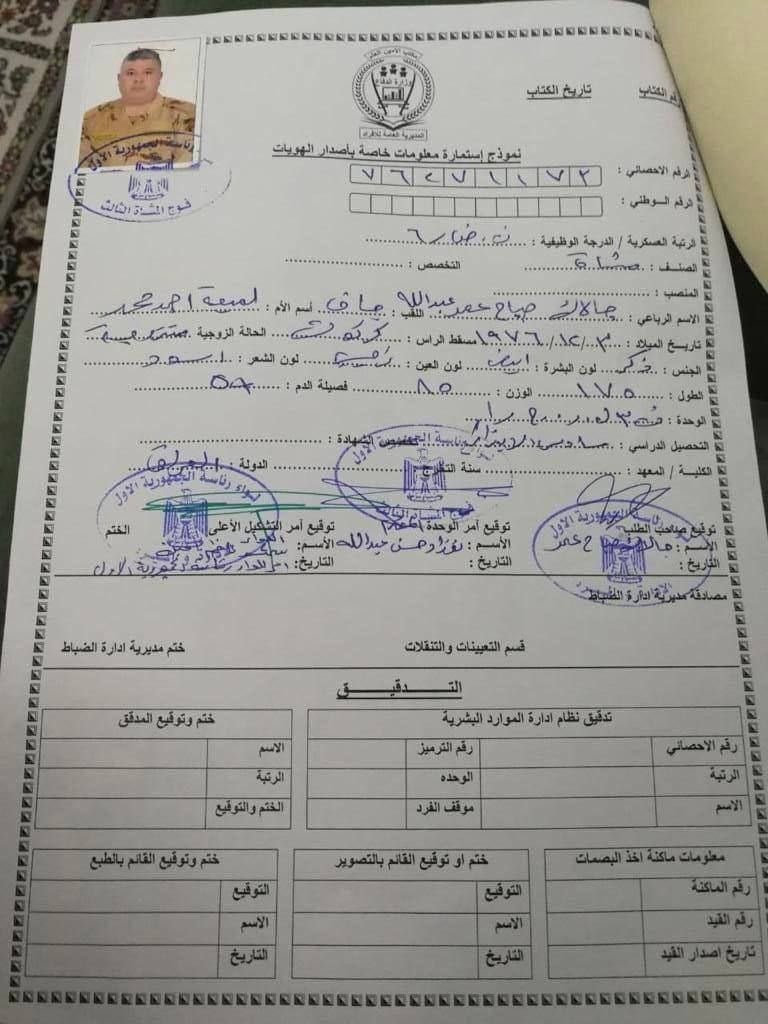 مكتب الأمين العام
وزارة الدفاع
المديرية العامة للأفراد
رقم الكتاب تاريخ الكتاب
نموذج إستمارة معلومات خاصة بأصدار الهويات
رئاسة الجمهورية الاول
فوج المشاة الثالث
الرقم الاحصائي :
الرقم الوطني :
الرتبة العسكرية / الدرجة الوظيفية : ن . ضابط
الصنف : مشاة التخصص :
المنصب :
الاسم الرباعي : چالاك صباح عمر عبدالله اللقب : جاف أسم الأم : لميعة احمد محمد
تاريخ الميلاد : ٣ / ١٢ / ١٩٧٦ مسقط الراس : كركوك الحالة الزوجية
الجنس : ذكر لون البشرة : ابيض لون العين : لون الشعر : اسود
الطول : ١٧٥ الوزن : ٨٥ فصيلة الدم :
الوحدة :
التحصيل الدراسي : تخصص الشهادة :
الكلية / المعهد : سنة التخرج الدولة : العراق
لواء رئاسة الجمهورية الاول
فوج المشاة الثالث
لواء رئاسة الجمهورية الاول
توقيع صاحب الطلب توقيع آمر الوحدة توقيع آمر التشكيل الأعلى الختم
الأسم : چالاك صباح عمر الأسم : نوزاد حسن عبدالله الأسم :
التاريخ : التاريخ : التاريخ :
مصادقة مديرية ادارة الضباط
قسم التعيينات والتنقلات ختم مديرية ادارة الضباط
التـــدقيـــق
تدقيق نظام ادارة الموارد البشرية ختم وتوقيع المدقق
رقم الاحصائي رقم الترميز الاسم
الرتبة الوحده الرتبة
الاسم موقف الفرد الختم والتوقيع
معلومات ماكنة اخذ البصمات ختم او توقيع القائم بالتصوير ختم وتوقيع القائم بالطبع
رقم الماكنة التوقيع التوقيع
رقم القيد الاسم الاسم
تاريخ اصدار القيد التاريخ التاريخ